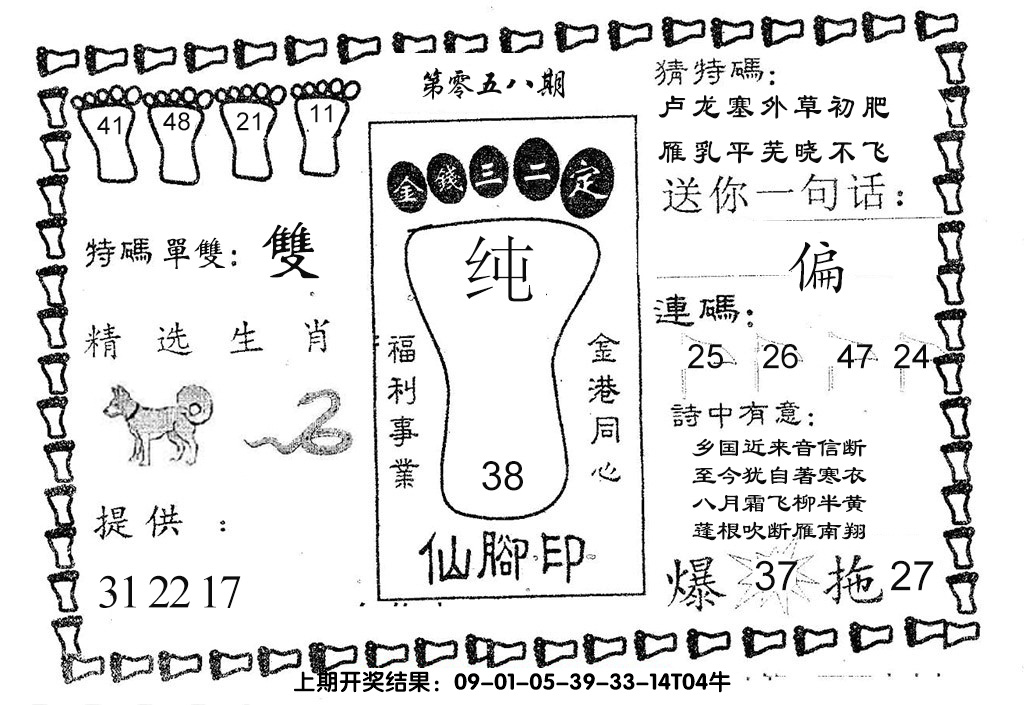 第零五八期
41 48 21 11
特碼單雙：雙
精选生肖
提供：
31 22 17
金錢三二定
纯
福利事業
金港同心
38
仙腳印
猜特碼：
卢龙塞外草初肥
雁乳平芜晓不飞
送你一句话：
偏
連碼：
25 26 47 24
詩中有意：
乡国近来音信断
至今犹自著寒衣
八月霜飞柳半黄
蓬根吹断雁南翔
爆 37 拖 27
上期开奖结果：09-01-05-39-33-14T04牛